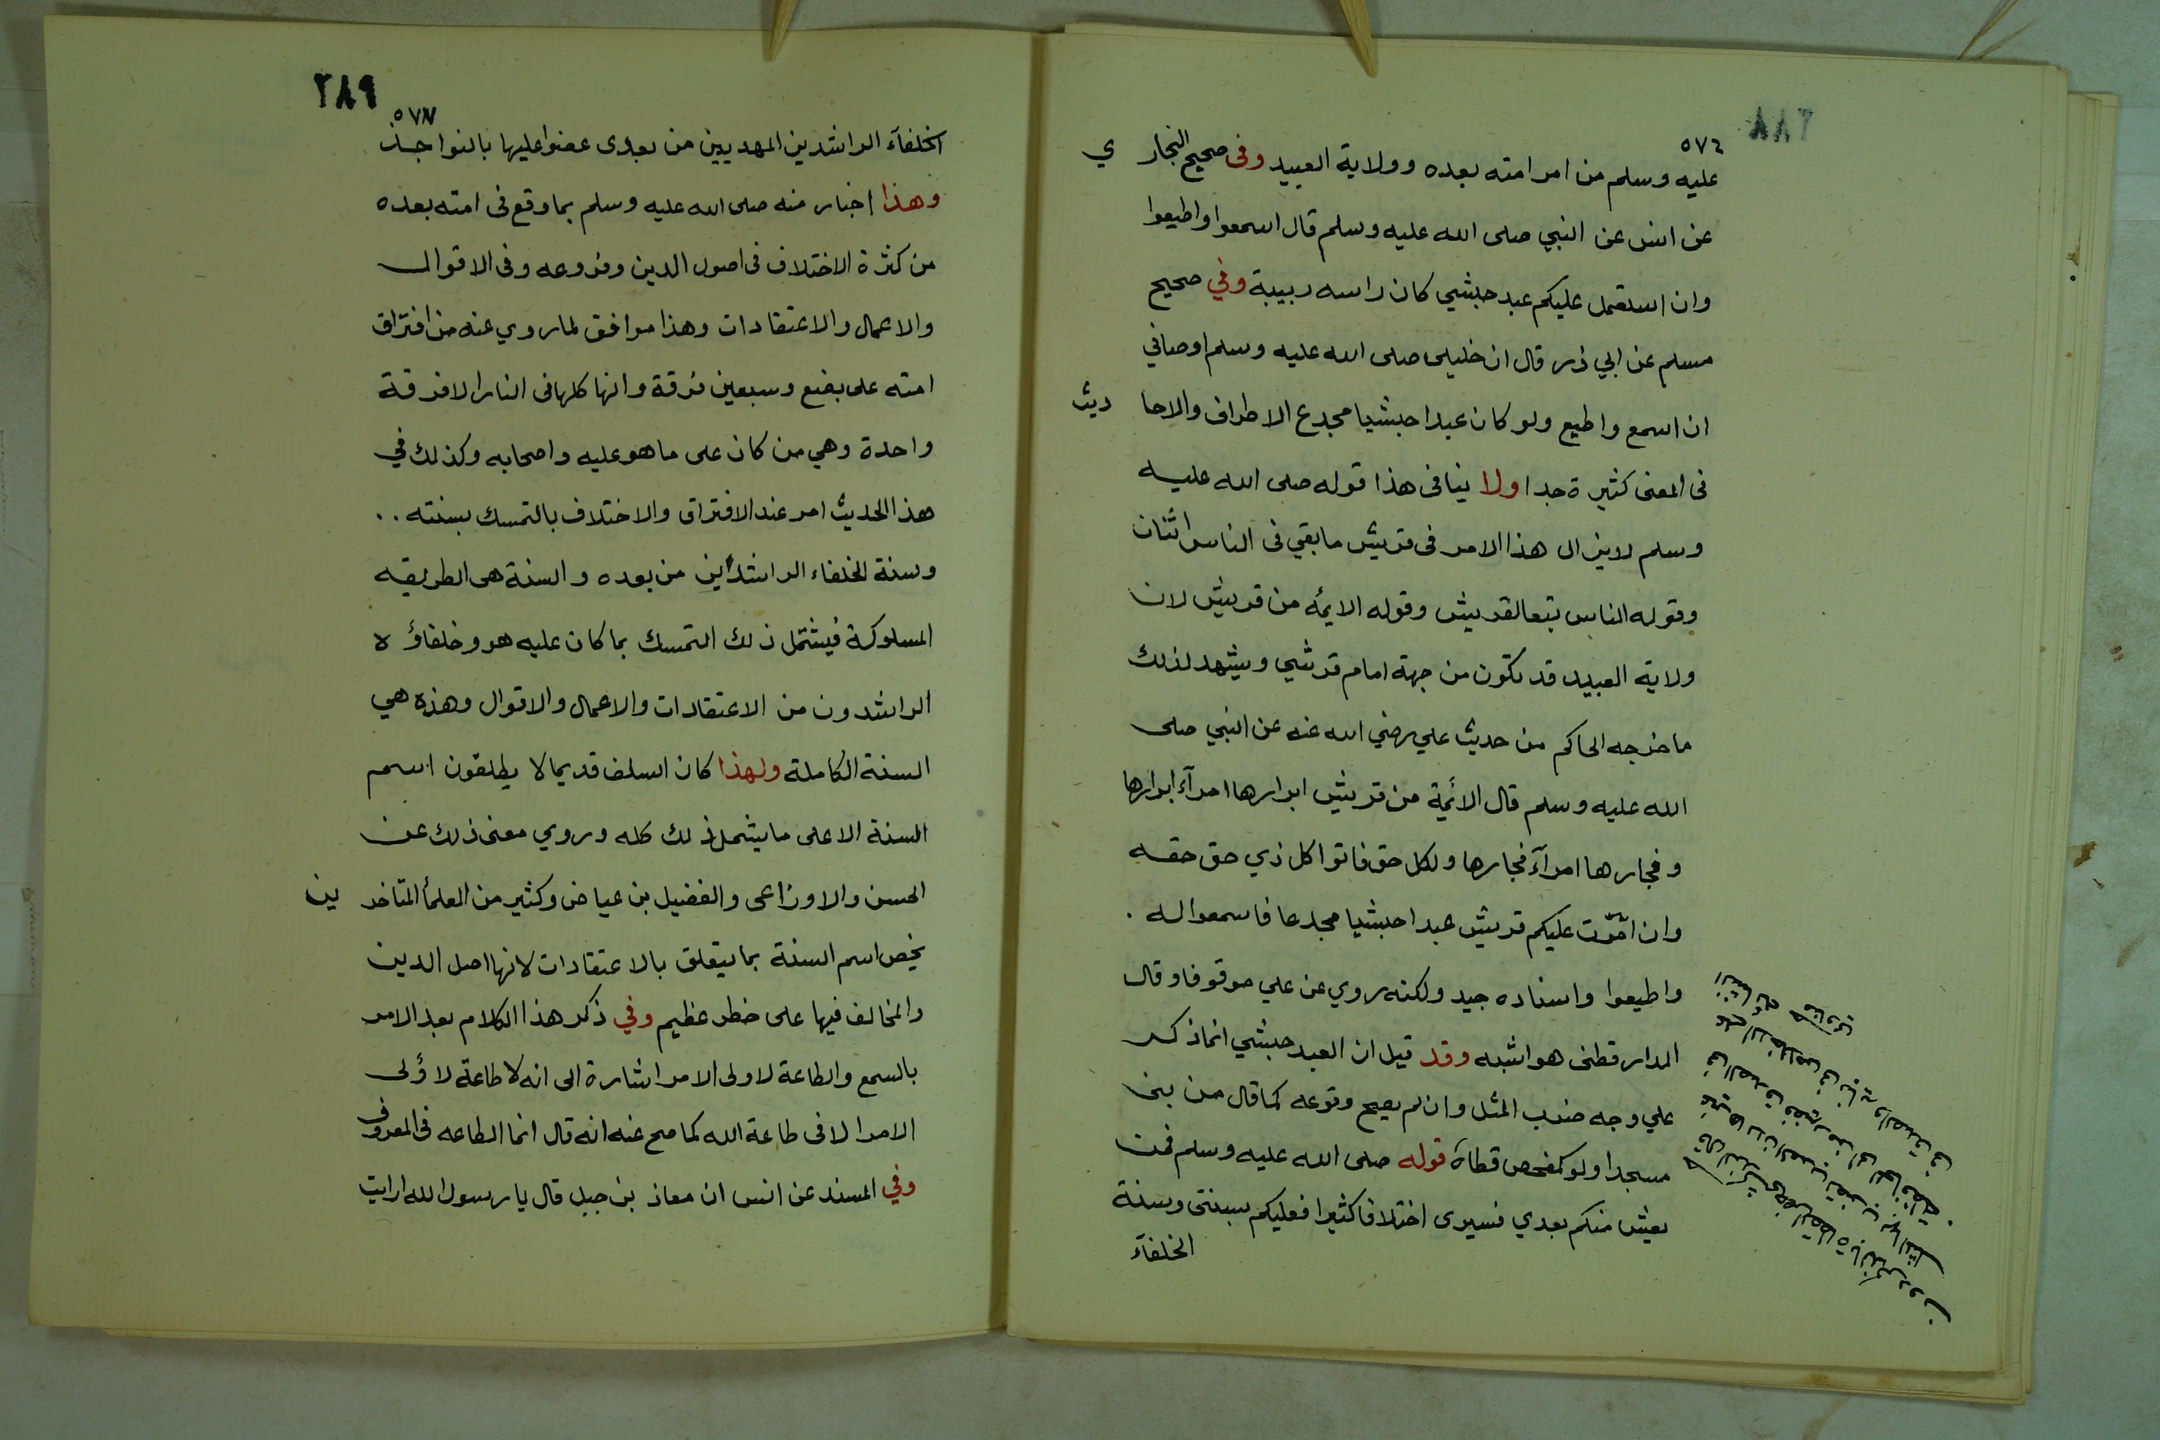 ٥٧٤
عليه وسلم من امر امته بعده وولاية العبيد وفى صحيح البخاري
عن انس عن النبي صلى الله عليه وسلم قال اسمعوا واطيعوا
وان استعمل عليكم عبد حبشي كان راسه زبيبة وفي صحيح
مسلم عن ابي ذر قال ان خليلى صلى الله عليه وسلم اوصاني
ان اسمع واطيع ولو كان عبدا حبشيا مجدع الاطراف والاحاديث
فى المعنى كثيرة جدا ولا ينافى هذا قوله صلى الله عليه
وسلم لايزال هذا الامر فى قريش ما بقي فى الناس اثنان
وقوله الناس تبعا لقريش وقوله الايمه من قريش لان
ولاية العبيد قد تكون من جهة امام قرشي ويشهد لذلك
ما خرجه الحاكم من حديث علي رضي الله عنه عن النبي صلى
الله عليه وسلم قال الائمة من قريش ابرارها امرآء ابرارها
وفجارها امرآء فجارها ولكل حق فاتوا كل ذي حق حقه
وان امّرت عليكم قريش عبدا حبشيا مجدعا فاسمعوا له .
واطيعوا واسناده جيد ولكنه روي عن علي موقوفا وقال
الدارقطنى هو اشبه وقد قيل ان العبد حبشي انما ذكر
علي وجه ضرب المثل وان لم يصح وقوعه كما قال من بنى
مسجدا ولو كمفحص قطاة قوله صلى الله عليه وسلم فمن
يعيش منكم بعدي فسيرى اختلافا كثيرا فعليكم بسنتى وسنة
الخلفآء
٢٨٩
٥٧٧
الخلفآء الراشدين المهديين من بعدى عضوا عليها بالنواجذ
وهذا اخبار منه صلى الله عليه وسلم بما وقع فى امته بعده
من كثرة الاختلاف فى اصول الدين وفروعه وفى الاقوال
والاعمال والاعتقادات وهذا موافق لما روي عنه من افتراق
امته على بضع وسبعين فرقة وانها كلها فى النار الا فرقة
واحدة وهي من كان على ما هو عليه واصحابه وكذلك في
هذا الحديث امر عند الافتراق والاختلاف بالتمسك بسنته . .
وسنة الخلفاء الراشدين من بعده والسنة هى الطريقه
المسلوكة فيشتمل ذلك التمسك بما كان عليه هو وخلفاؤه
الراشدون من الاعتقادات والاعمال والاقوال وهذه هي
السنة الكاملة ولهذا كان السلف قديما لا يطلقون اسم
السنة الا على ما يشمل ذلك كله وروي معنى ذلك عن
الحسن والاوزاعى والفضيل بن عياض وكثير من العلمأ المتاخرين
يخص اسم السنة بما يتعلق بالاعتقادات لانها اصل الدين
والمخالف فيها على خطر عظيم وفي ذكر هذا الكلام بعد الامر
بالسمع والطاعة لاولى الامر اشارة الى انه لا طاعة لاؤلى
الامر الا فى طاعة الله كما صح عنه انه قال انما الطاعه فى المعروف
وفي المسند عن انس ان معاذ بن جبل قال يا رسول الله ارايت